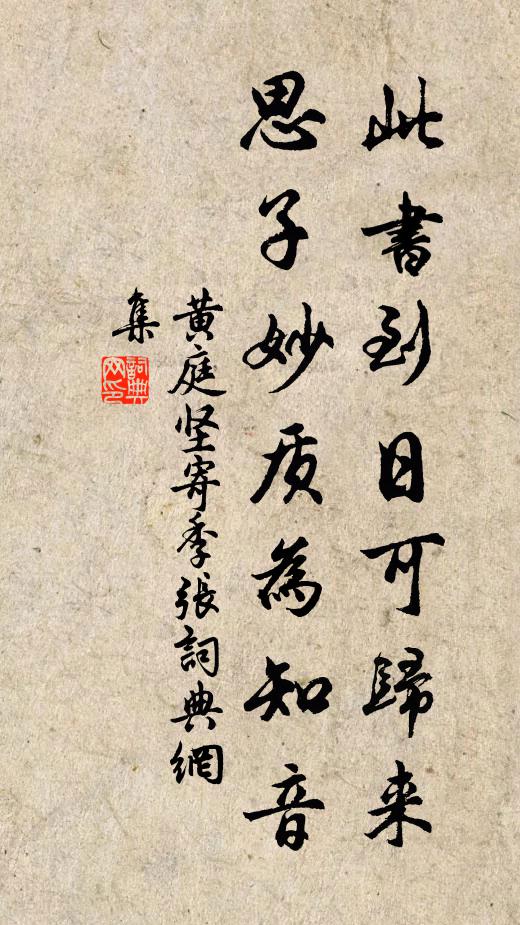 此書到日可歸来
思子妙质為知音
黄庭坚寄季張詞典網
集
詞典网印